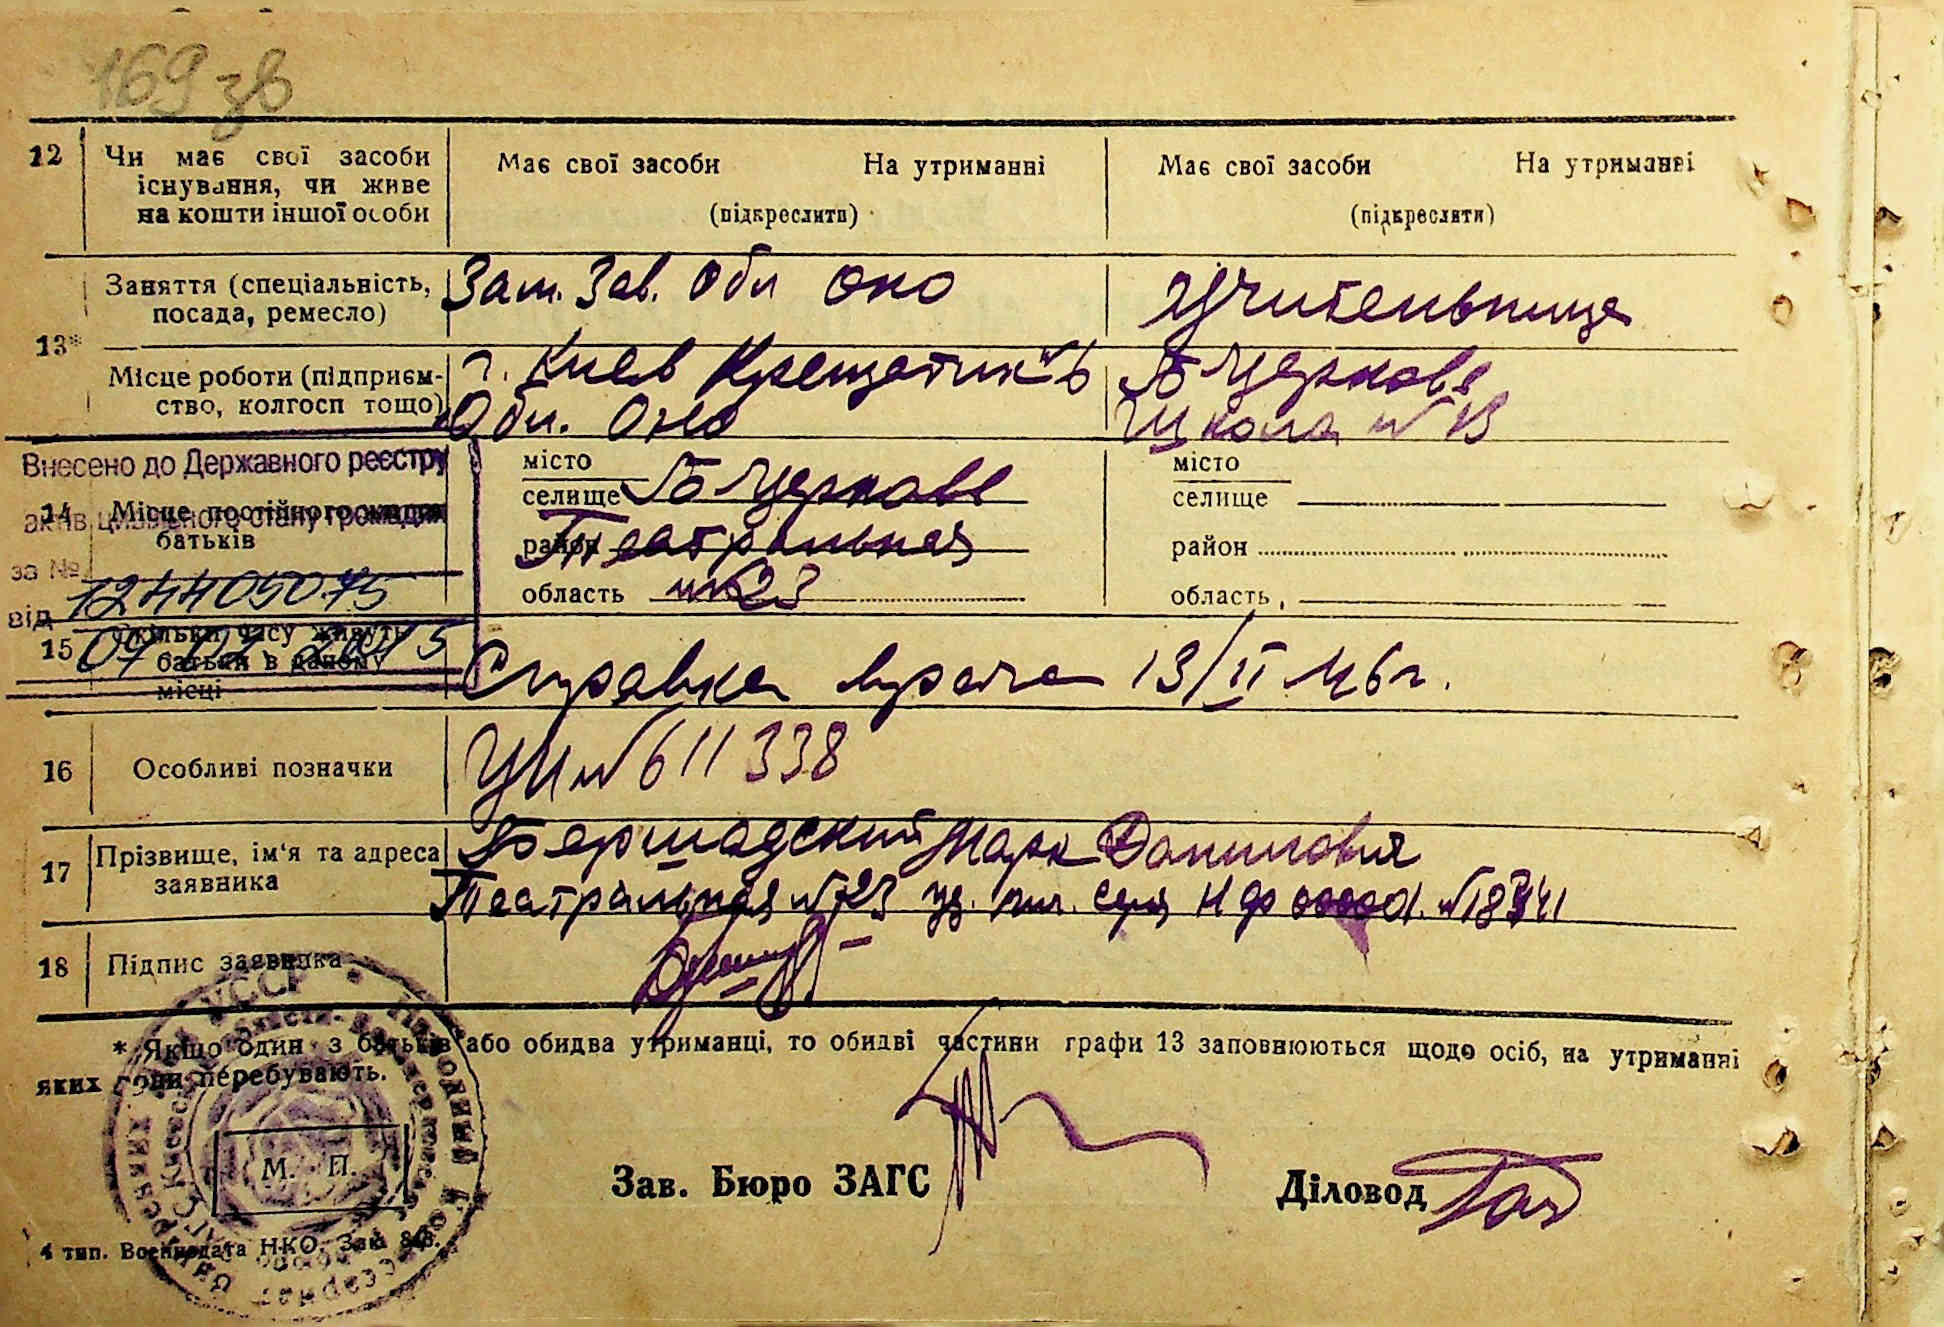 169 зв
12 Чи має свої засоби існування, чи живе на кошти іншої особи
Має свої засоби На утриманні
(підкреслити)
Має свої засоби На утриманні
(підкреслити)
13*
Заняття (спеціальність, посада, ремесло)
Зам. Зав. Обл Оно
Учительница
Місце роботи (підприєм-
ство, колгосп тощо)
г. Киев Крещатик № 6
Обл. Оно
Б Церковь
Школа № 13
Внесено до Державного реєстру
актів цивільного стану громадян
за № 124405075
від 2015
14 Місце постійного життя батьків
місто
селище Б Церковь
район Театральная
область № 23
місто
селище
район
область
15 Скільки часу живуть батьки в даному місці
Справка врача 13/II 46 г.
16 Особливі позначки
УИ № 611338
17 Прізвище, ім'я та адреса заявника
Бершадский Марк Данилович
Театральная № 23
18 Підпис заявника
* Якщо один з батьків або обидва утриманці, то обидві частини графи 13 заповнюються щодо осіб, на утриманні
яких вони перебувають.
М. П.
Зав. Бюро ЗАГС
Діловод
4 тип. Воениздата НКО. Зак